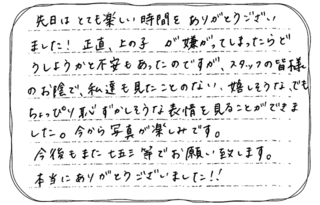 先日は とても楽しい 時間を ありがとうござい
ました! 正直、上の子 が嫌がってしまったらど
うしようかと不安もあったのですが、スタッフの皆様
のお陰で、私達も見たことのない、嬉しそうな、でも
ちょっぴり恥ずかしそうな表情を見ることができま
した。今から写真が楽しみです。
今後もまた七五三等でお願い致します。
本当にありがとうございました!!